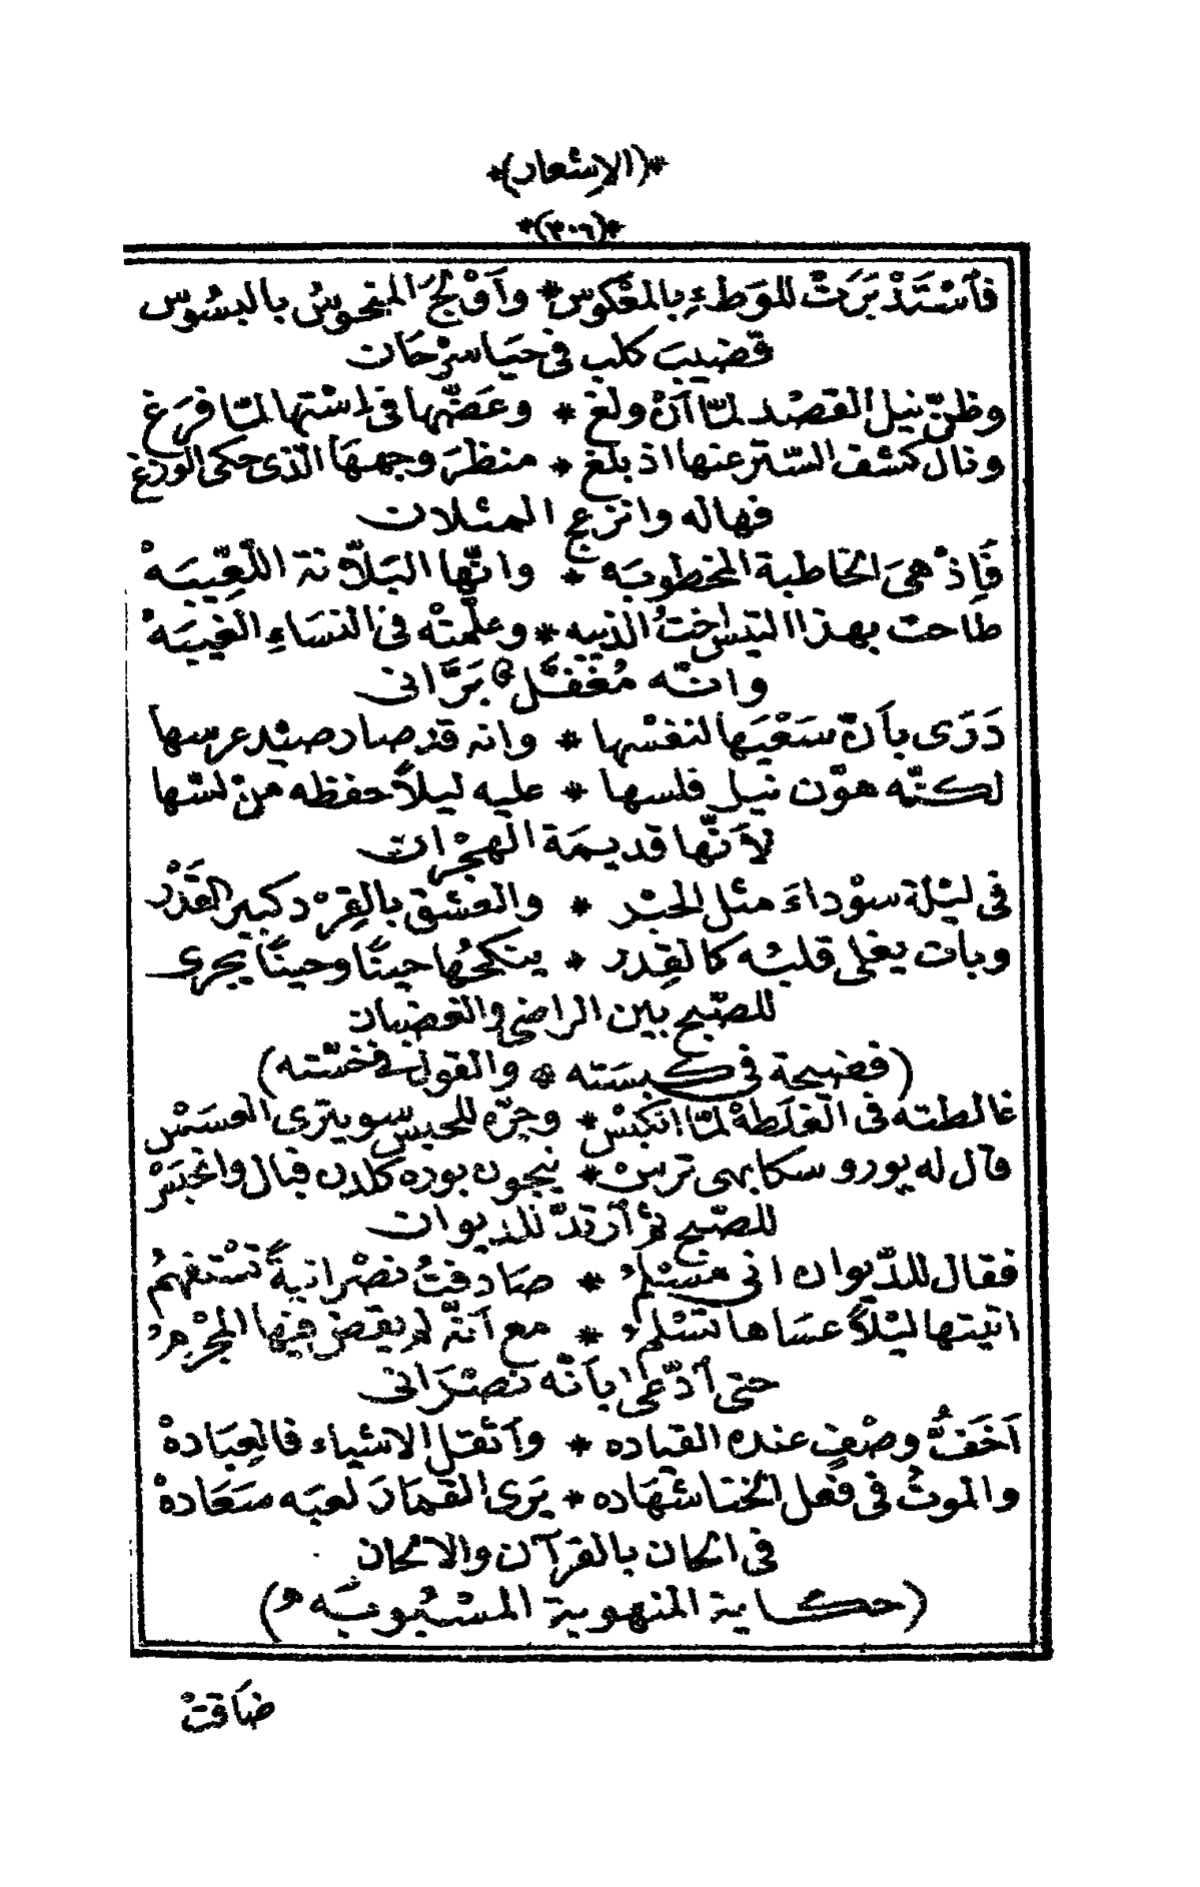 *(الاشعار)*
*(٣٠٦)*
فَاسْتَدْبَرَتْ للوَطءِ بالمَعْكوس * وأَوْلَجَ المنحوسُ بالبسُوس
قضيبَ كلب في حَيَا سرْحَان
وظنّ نيل القصْد لمّا أَنْ ولغ * وعَضّها في اسْتها لمّا فرَغ
ونال كشف السّتر عنها اذ بلغ * منظرَ وجههَا الّذى حكى الوزغ
فهاله وانزعج المثلان
فَإِذْ هىَ الخاطبة المخطوبَه * وانّها البَلّانة اللّعِّيبَهْ
طاحت بهذا التيس اختُ الذيبه * وعلّمتْه فى النسَاءِ الغيبَهْ
وانّه مُغَفّل برَّانى
دَرَى بأنّ سَعْيَها لنفسْها * وانه قد صار صيْد عرسها
لكنّه هوّن نيل فلسها * عليه ليلاً حفظه منْ لسّها
لأنّها قديمَة الهجْران
فى ليْلة سوْداءَ مثل الحبْر * والعشق بالقِرْد كبير القَدْر
وبات يغلى قلبُه كالقِدر * ينكحُها حينًا وحينًا يجرى
للصّبح بين الراضى والغضبان
(فضيحة فى كبسَته * والقول فى خسّته)
غالطته فى الغَلطَهْ لمّا انكبسْ * وجرّه للحبس سو يترى العسَسْ
قال له يورو سكا بهى ترسْ * نيجون بوره كلدن قبال وانحبَسْ
للصّبح ثمّ ارتدّ للديوان
فقال للدّيوان انى مسْلمُ * صَادفتُ نصْرانيةً تسْتفهمُ
اتيتها ليْلاً عسَاها تسْلمُ * مع أنّه لم يقض فيها المجْرمُ
حتى ادّعى بأنّه نصْرَانى
أَخَفُّ وصْفٍ عنده القياده * وأثقل الاشياء فالعِبَادهْ
والموتُ فى فعل الخنا شهَاده * يَرى القمارَ لعبَه سَعَادهْ
فى الحان بالقرآن والالحان
(حكاية المنهوبة المسْبُوبَه)
ضاقتْ